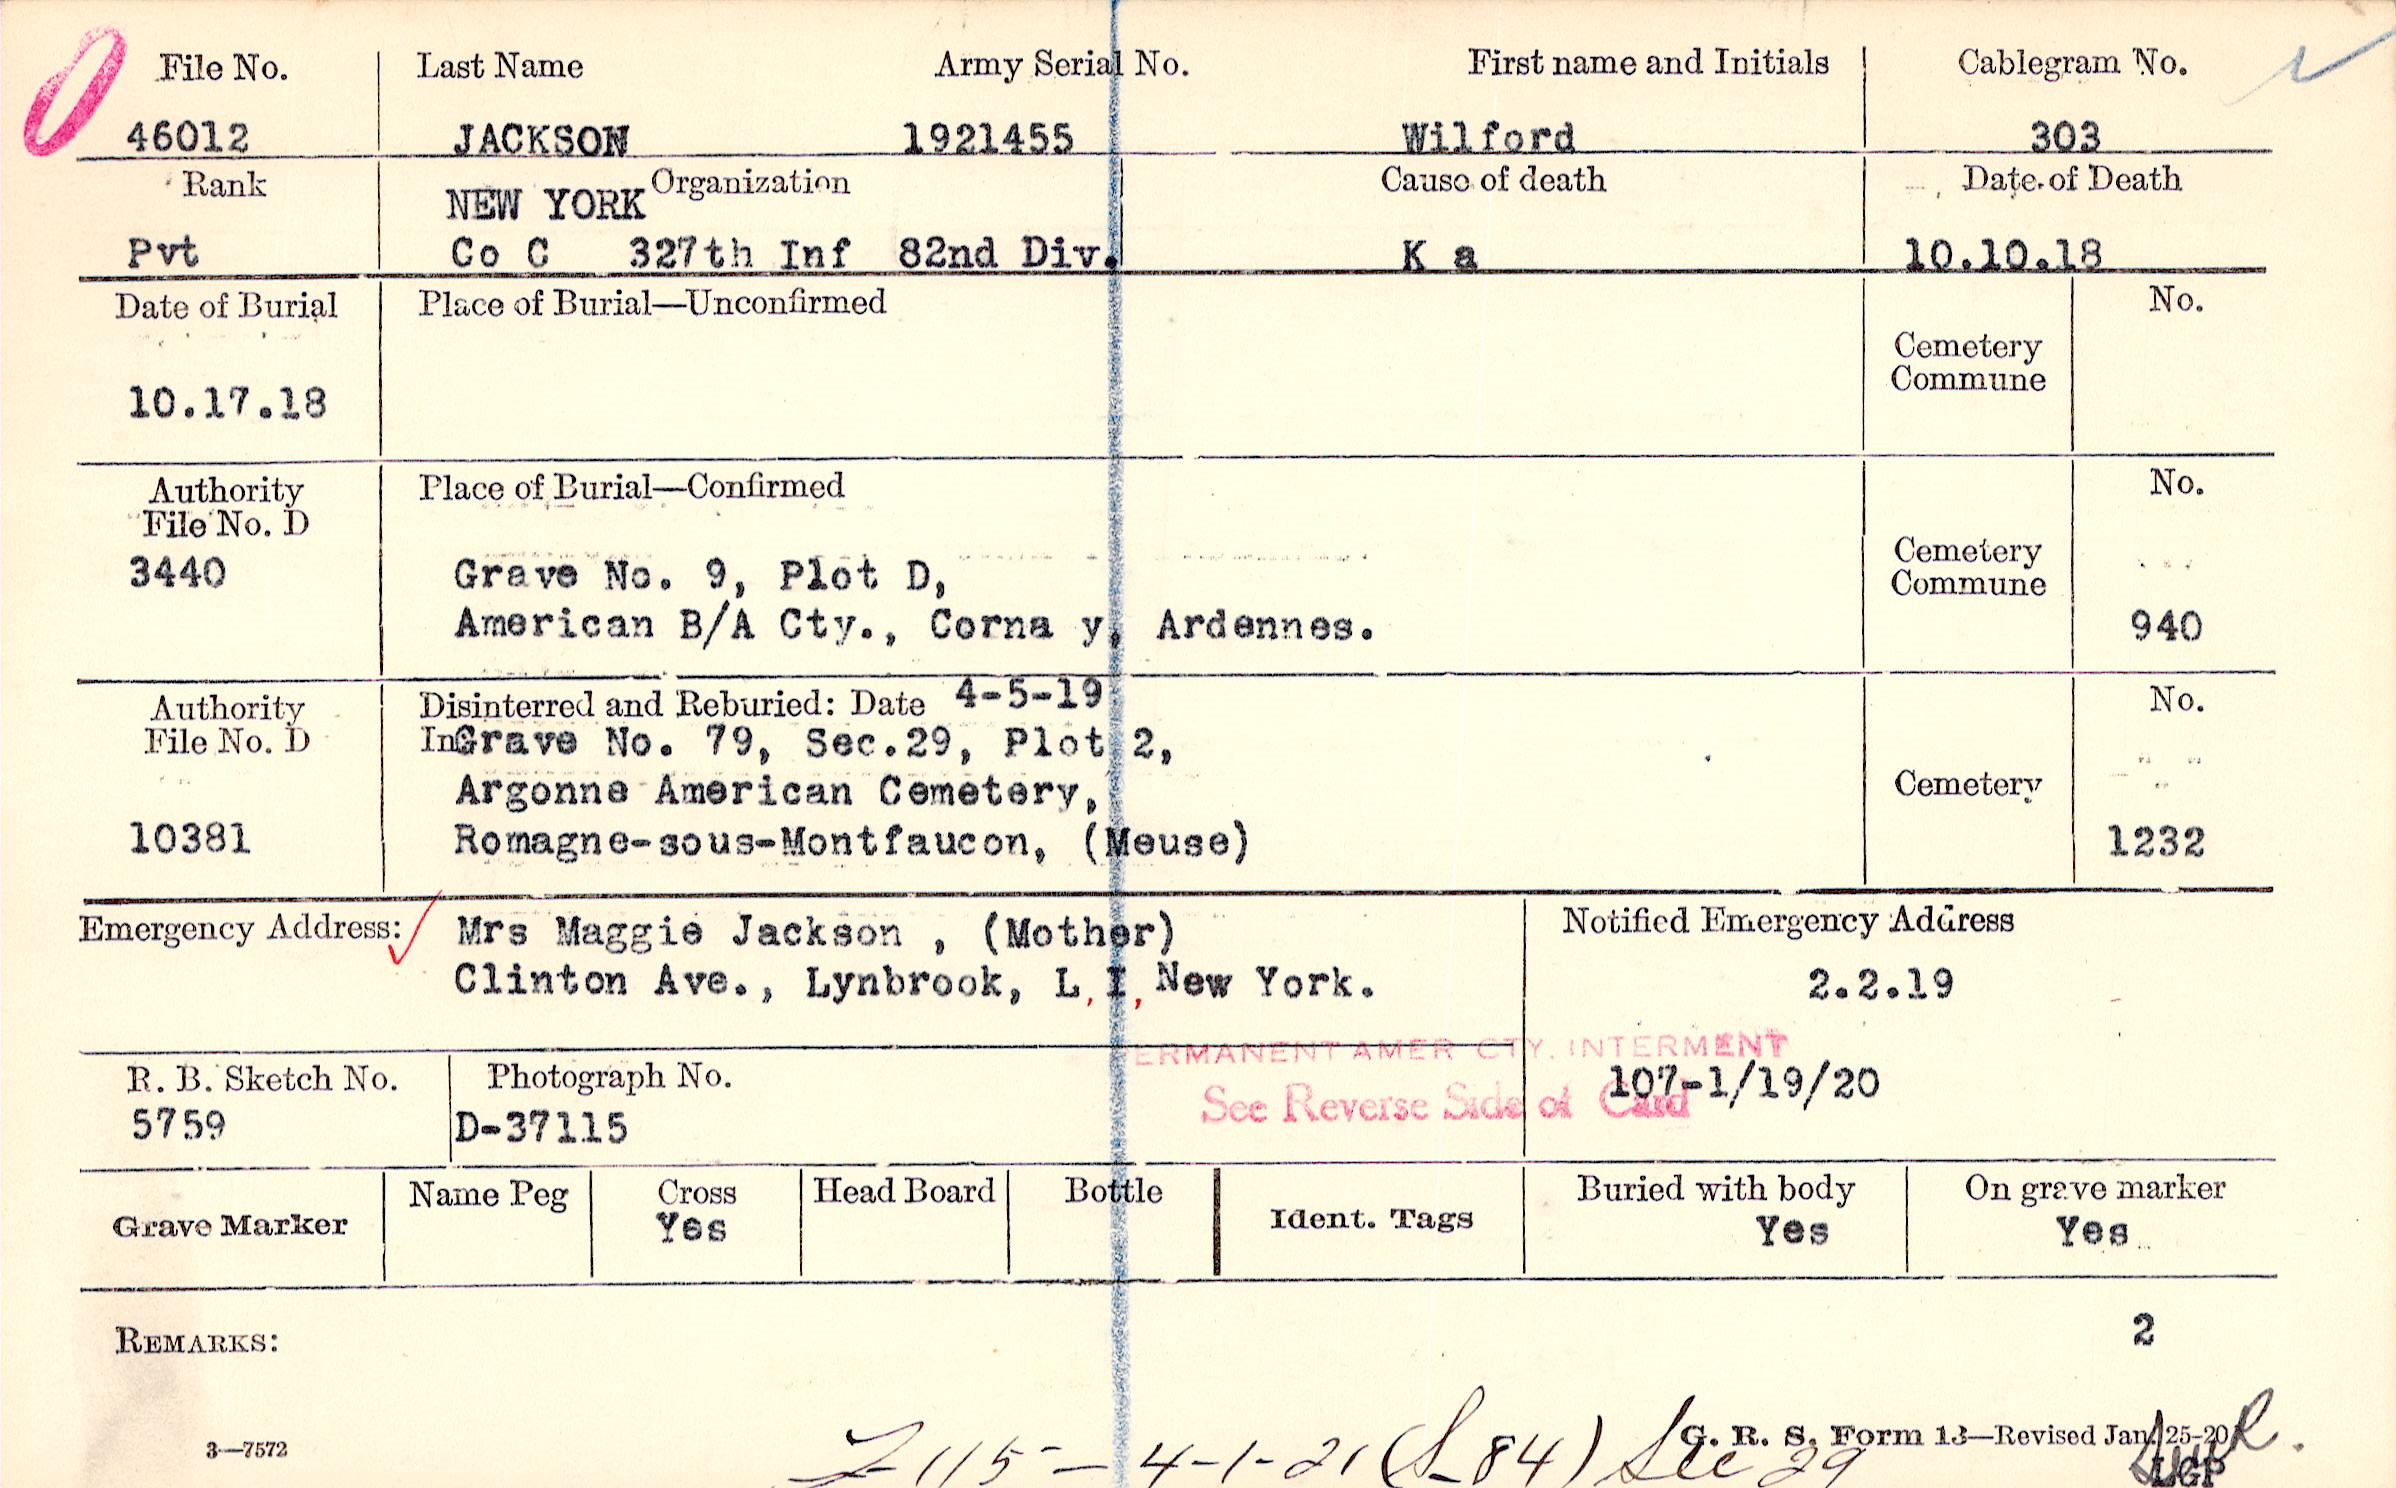 File No. Last Name Army Serial No. First name and Initials Cablegram No.
46012 JACKSON 1921455 Wilford 303
Rank NEW YORK Organization Cause of death Date of Death
Pvt Co C 327th Inf 82nd Div. K a 10.10.18
Date of Burial Place of Burial—Unconfirmed No.
Cemetery
Commune
10.17.18
Authority Place of Burial—Confirmed No.
File No. D
Cemetery
Commune
3440 Grave No. 9, Plot D,
American B/A Cty., Corna y, Ardennes. 940
Authority Disinterred and Reburied: Date 4-5-19 No.
File No. D In Grave No. 79, Sec.29, Plot 2,
Argonne American Cemetery, Cemetery
10381 Romagne-sous-Montfaucon, (Meuse) 1232
Emergency Address: Mrs Maggie Jackson , (Mother) Notified Emergency Address
Clinton Ave., Lynbrook, L,I, New York. 2.2.19
ERMANENT AMER CTY. INTERMENT
R. B. Sketch No. Photograph No. 107-1/19/20
See Reverse Side of Card
5759 D-37115
Grave Marker Name Peg Cross Head Board Bottle Ident. Tags Buried with body On grave marker
Yes Yes Yes
2
REMARKS:
3—7572 G. R. S. Form 13—Revised Jan. 25-20
115 — 4-1-21 (S-84) Sec 29
LGP